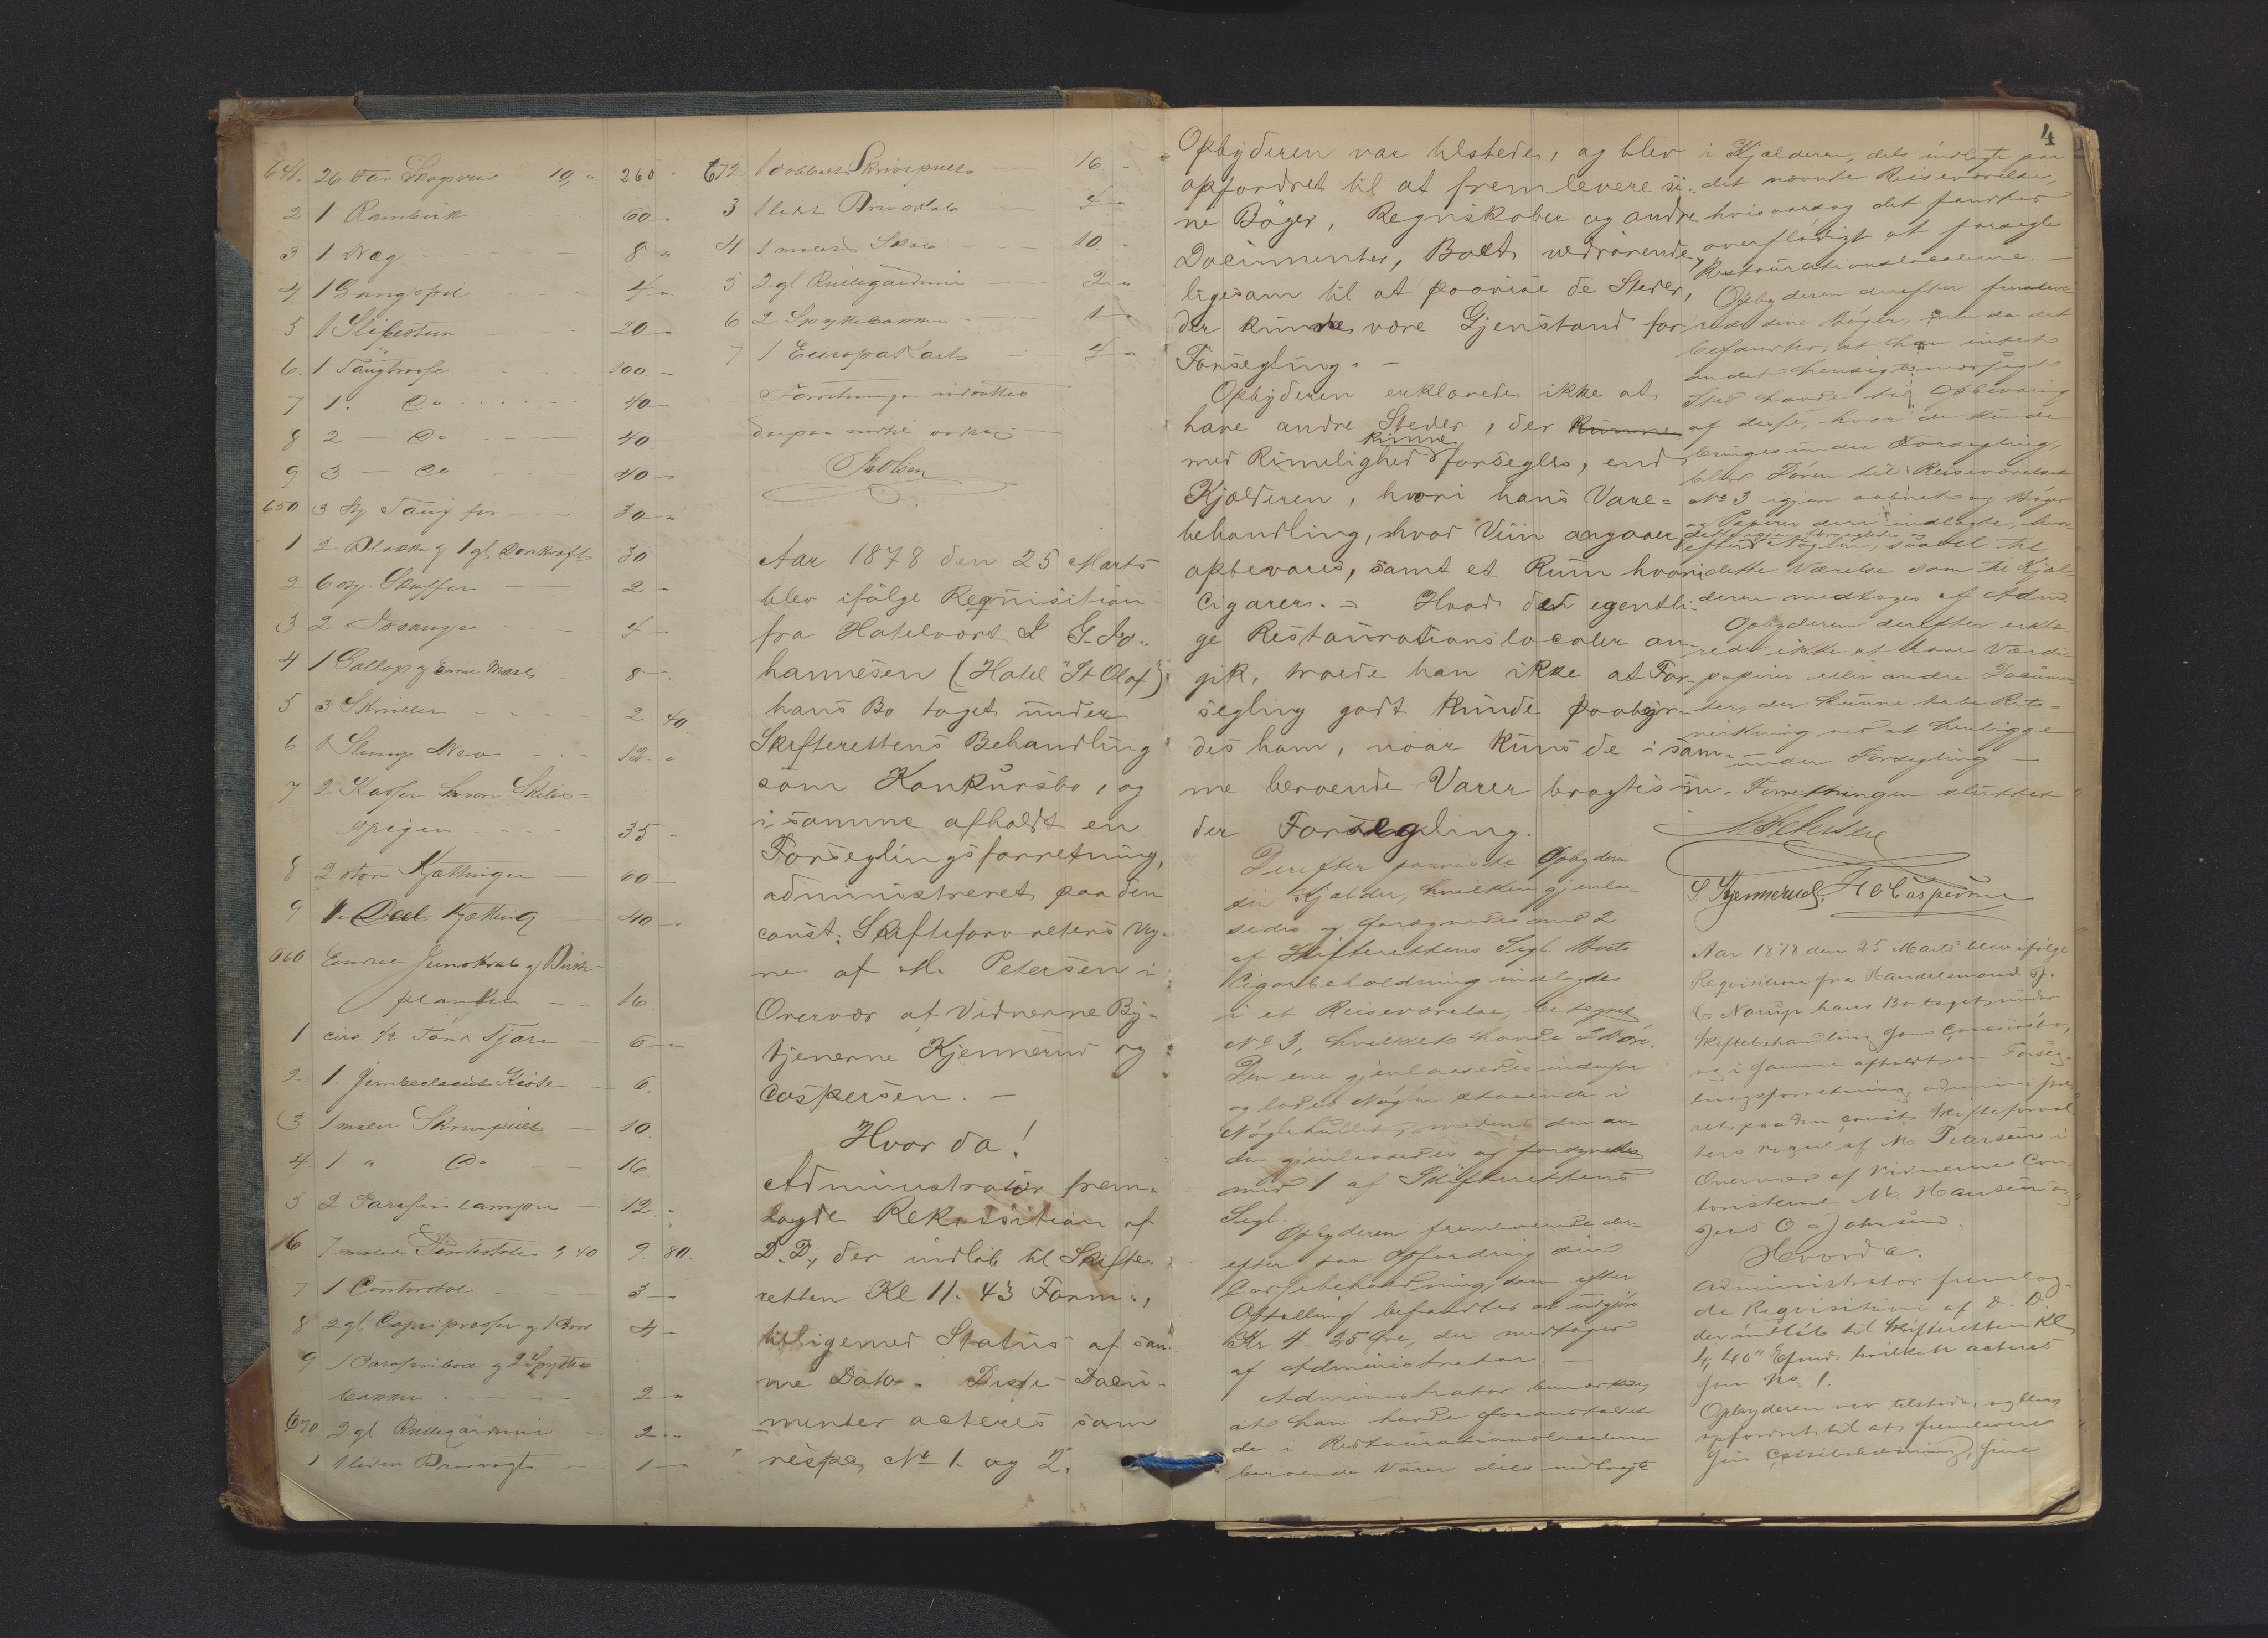 641. 26 Tav 10 " 260 -
2 1 Rambuk 60 -
3 1 Væg 8 -
4 1 4 -
5 1 Slibesteen 20 -
6. 1 100 -
7 1. Do 40 -
8 2 — Do 40
9 3 — Do 40 -
650 3 for 30 -
1 2 Blokke og 1 gl Donkraft 30
2 6 2 -
3 2 4 -
4 1 og 8
5 3 Skruller 2 40.
6 1 12 -
7 2 Kasser
35 -
8 2 store Kjættinger 60 -
9 1 Deel Kjætting 40 -
660 Endeel og
planker 16
1 circa 1/2 Tønde Tjære 6 -
2. 1. Jernbeslaaet Kiste 6.
3 1 malet Skrivepult 10
4. 1 " Do 16
5 2 Parafinlamper 12. -
16 7 malede 1,40 9. 80.
7 1 Contorstol 3 -
8 2 gl. Copipresser og 1 Bord 4 -
9 1 og 2 Spytte
bakker 2 -
670 2 gl Rullegardiner 2 -
1 1 liden 1 -
672 1 dobbelt Skrivepult 16 -
3 1 lidet 4 -
4 1 malet Skab 10 -
5 2 gl Rullegardiner 2 -
6 2 Spyttebakker 1 -
7 1 Europakart 4 -
Forretningen
Aar 1878 den 25 Marts
blev ifölge Reqvisition
fra Hotelvært I. G. Jo-
hannesen (Hotel "St Olaf")
hans Bo taget under
Skifterettens Behandling
som Konkursbo, og
i samme afholdt en
Forseglingsforretning,
administreret paa den
const. Skifteforvalters Veg-
ne af M. Petersen i
Overvær af Vidnerne By-
tjenerne Kjennerud og
Caspersen. -
Hvor da!
Administrator frem-
lagde Rekvisition af
D. D., der indløb til Skifte-
retten Kl 11. 43 Form.,
tilligemed Status af sam-
me Dato. Disse Docu-
menter acteres som
respe. No 1. og 2.
4
Opbyderen var tilstede, og blev
opfordret til at fremlevere si-
ne Böger, Regnskaber og andre
Documenter, Boet vedrörende,
ligesom til at paavise de Steder,
der kunde være Gjenstand for
Forsegling. -
Opbyderen erklærede ikke at
have andre Steder, der kunne
kunne
med Rimelighed forsegles, end
Kjælderen, hvori hans Vare-
behandling, hvad Viin angaaer,
opbevares, samt et Rum hvori
Cigarer. - Hvad det egentli-
ge Restaurationslocaler an-
gik, troede han ikke at For-
segling godt kunde paabyr-
des ham, naar kuns de i sam-
me beroende Varer bragtes un-
der Forsegling.
Derefter paaviste Opbyderen
sin Kjælder, hvilken gjenlaa-
sedes og forsynedes med 2
af Skifterettens Segl. Boets
Cigarbeholdning indlagdes
i et Reiseværelse, betegnet
No 3, hvilket havde 2 Döre.
Den ene gjenlaasedes indenfra
og lodes Nöglen staaende i
Nöglehullet, medens den an-
den gjenlaasedes og forsynedes
med 1 af Skifterettens
Segl.
Opbyderen fremleverede der-
efter paa Opfordring sin
Cassebeholdning, som efter
Optælling befandtes at udgjöre
Kr 4 - 25 Øre, der modtoges
af Administrator. -
Administrator bemærkede,
at han havde foranstaltet
de i Restaurationslocalerne
beroende Varer dels nedbragte
i Kjælderen, dels indlagte paa
det nævnte Reiseværelse,
hvisaarsag det fandtes
overflödigt at forsegle
Restaurationslocalerne. -
Opbyderen derefter fremleve-
rede sine Böger, men da det
befandtes, at han intet
andet hensigtsmæssigt
Sted havde til Opbevaring
af disse, hvor de kunde
bringes under Forsegling,
blev Dören til Reiseværelset
No 3 igjen aabnet og Böger
og Papirer deri indlagte, hvor-
dette igjen forsegledes og
efter Nöglen, saavel til
dette Værelse som til Kjæl-
deren modtoges af Adm.
Opbyderen derefter erklæ-
rede ikke at have Værdi-
papirer eller andre Documen-
ter, der kunne tabe Rets-
virkning ved at henligge
under Forsegling. -
Forretningen sluttet
M. Petersen
S. Kjennerud. H O Caspersen
Aar 1878 den 25 Marts blev ifölge
Reqvisition fra Handelsmand J.
C Narup hans Bo taget under
Skiftebehandling som Concursbo,
og i samme afholdt en Forseg-
lingsforretning, administre-
ret paa den const. Skifteforval-
ters Vegne af M Petersen i
Overvær af Vidnerne Con-
toristerne M Hansen og
Jens O. Johnsen.
Hvorda.
Administrator fremlag-
de Reqvisition af D. D.
der indløb til Skifteretten Kl
4, 40" Efterm. hvilket acteres
som No. 1.
Opbyderen var tilstede, og blev
opfordret til at fremlevere
sin Cassebeholdning, sine